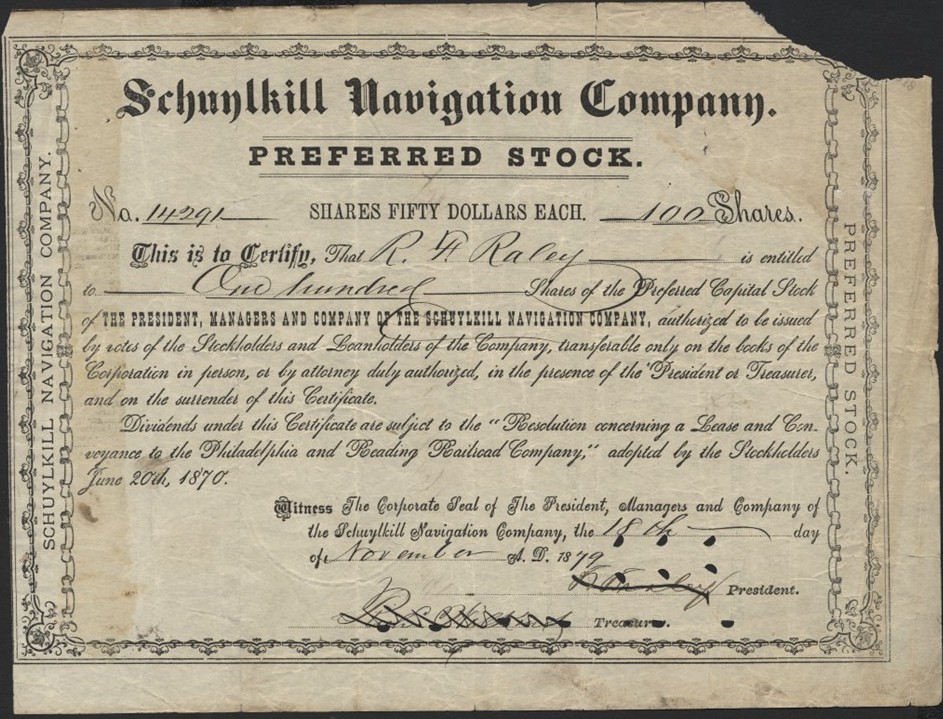 Schuylkill Navigation Company.
PREFERRED STOCK.
No. 14291 SHARES FIFTY DOLLARS EACH. 100 Shares.
This is to Certify, That R. H Raley is entitled
to One hundred Shares of the Preferred Capital Stock
of THE PRESIDENT, MANAGERS AND COMPANY OF THE SCHUYLKILL NAVIGATION COMPANY, authorized to be issued
by votes of the Stockholders and Loanholders of the Company, transferable only on the books of the
Corporation in person, or by attorney duly authorized, in the presence of the President or Treasurer,
and on the surrender of this Certificate.
Dividends under this Certificate are subject to the "Resolution concerning a Lease and Con-
veyance to the Philadelphia and Reading Railroad Company," adopted by the Stockholders
June 20th, 1870.
Witness The Corporate Seal of The President, Managers and Company of
the Schuylkill Navigation Company, the 18th day
of November A. D. 1879
President.
Treasurer.
SCHUYLKILL NAVIGATION COMPANY.
PREFERRED STOCK.